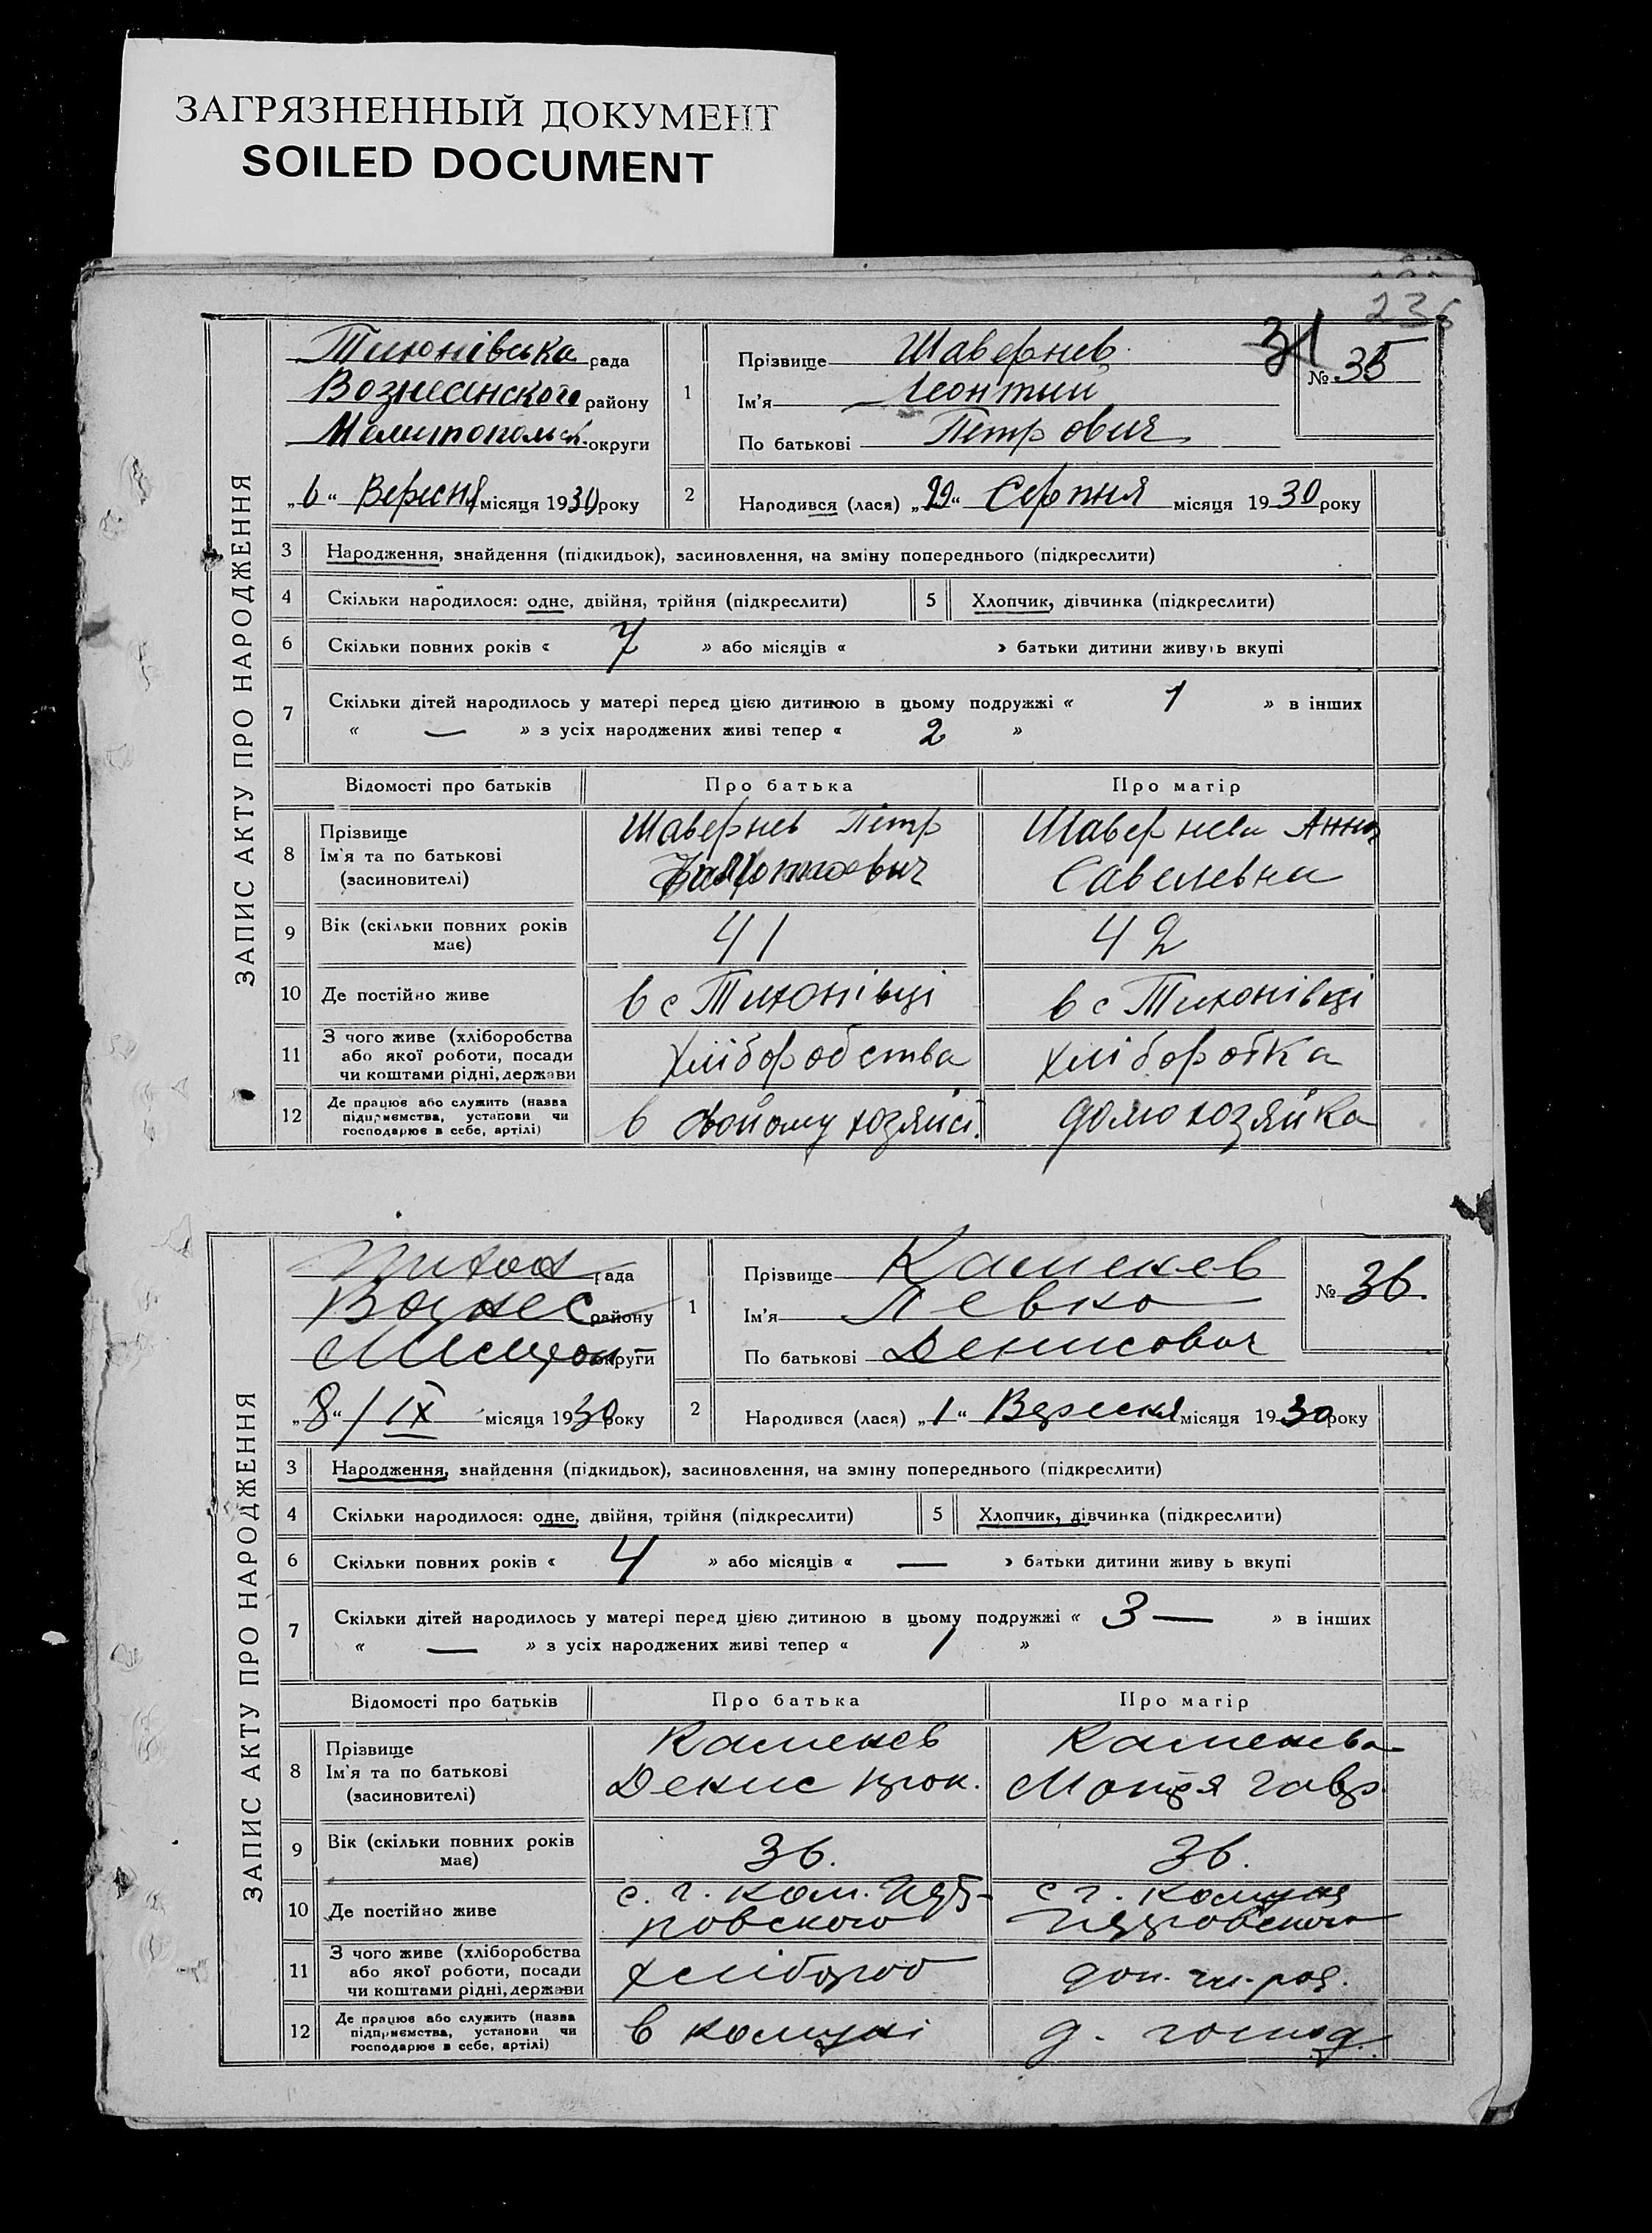 ЗАГРЯЗНЕННЫЙ ДОКУМЕНТ
SOILED DOCUMENT
ЗАПИС АКТУ ПРО НАРОДЖЕННЯ
Тихонівська рада
Вознесенского району
Мелитопольск. округи
„6“ Вересня місяця 1930 року
1
Прізвище Шавернев
Ім'я Леонтий
По батькові Петрович
31
№ 35
2
Народився (лася) „29“ Серпня місяця 1930 року
3 Народження, знайдення (підкидьок), засиновлення, на зміну попереднього (підкреслити)
4 Скільки народилося: одне, двійня, трійня (підкреслити) 5 Хлопчик, дівчинка (підкреслити)
6 Скільки повних років « 7 » або місяців « » батьки дитини живуть вкупі
7 Скільки дітей народилось у матері перед цією дитиною в цьому подружжі « 1 » в інших
« — » з усіх народжених живі тепер « 2 »
Відомості про батьків Про батька Про матір
8 Прізвище
Ім'я та по батькові
(засновителі)
Шавернев Пётр
Шавернева Анна
Савелевна
9 Вік (скільки повних років має) 41 42
10 Де постійно живе в с Тихонівці в с Тихонівці
11 З чого живе (хліборобства
або якої роботи, посади
чи коштами рідні, держави
хліборобства хліборобка
12 Де працює або служить (назва
підприємства, установи чи
господарює в себе, артілі)
в свойому хозяйст. домохозяйка
ЗАПИС АКТУ ПРО НАРОДЖЕННЯ
Тихон рада
Вознес району
округи
„8“ / IX місяця 1930 року
1
Прізвище Каменев
Ім'я Левко
По батькові Денисович
№ 36.
2
Народився (лася) „1“ Вересня місяця 1930 року
3 Народження, знайдення (підкидьок), засиновлення, на зміну попереднього (підкреслити)
4 Скільки народилося: одне, двійня, трійня (підкреслити) 5 Хлопчик, дівчинка (підкреслити)
6 Скільки повних років « 4 » або місяців « — » батьки дитини живу ь вкупі
7 Скільки дітей народилось у матері перед цією дитиною в цьому подружжі « 3 — » в інших
« — » з усіх народжених живі тепер « 1 »
Відомості про батьків Про батька Про матір
8 Прізвище
Ім'я та по батькові
(засиновителі)
Каменев
Денис Прок.
Каменева
Мотря Гавр.
9 Вік (скільки повних років має) 36. 36.
10 Де постійно живе
с. г. ком. Пет-
ровского
с г. комуна
Петровского
11 З чого живе (хліборобства
або якої роботи, посади
чи коштами рідні, держави
хлібороб
12 Де працює або служить (назва
підприємства, установи чи
господарює в себе, артілі)
в комуні д. господ.